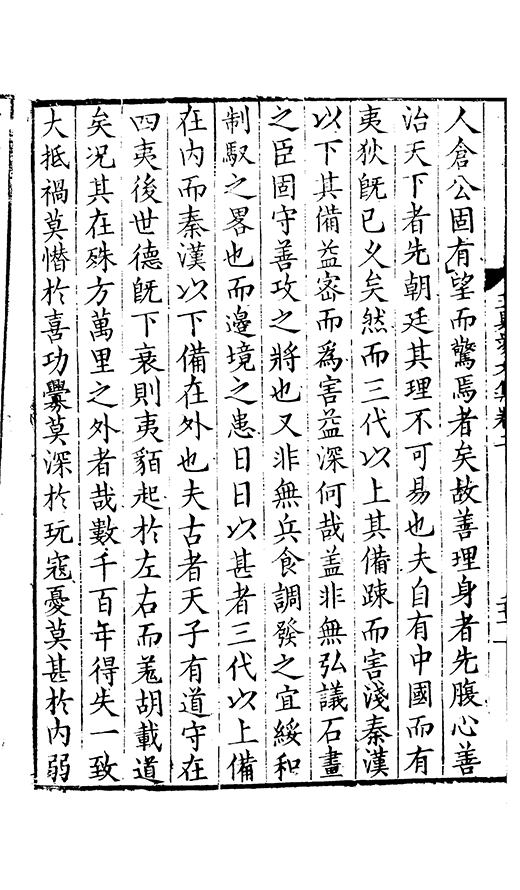 人倉公固有望而驚焉者矣故善理身者先腹心善
治天下者先朝廷其理不可易也夫自有中國而有
夷狄旣已乂矣然而三代以上其備踈而害淺秦漢
以下其備益宻而爲害益深何哉盖非無弘議石畫
之臣固守善攻之將也又非無兵食調發之宜綏和
制馭之畧也而邉境之患日日以甚者三代以上備
在内而秦漢以下備在外也夫古者天子有道守在
四夷後世德旣下衰則夷貊起於左右而羗胡載道
矣况其在殊方萬里之外者哉數千百年得失一致
大抵禍莫憯於喜功釁莫深於玩寇憂莫甚於内弱